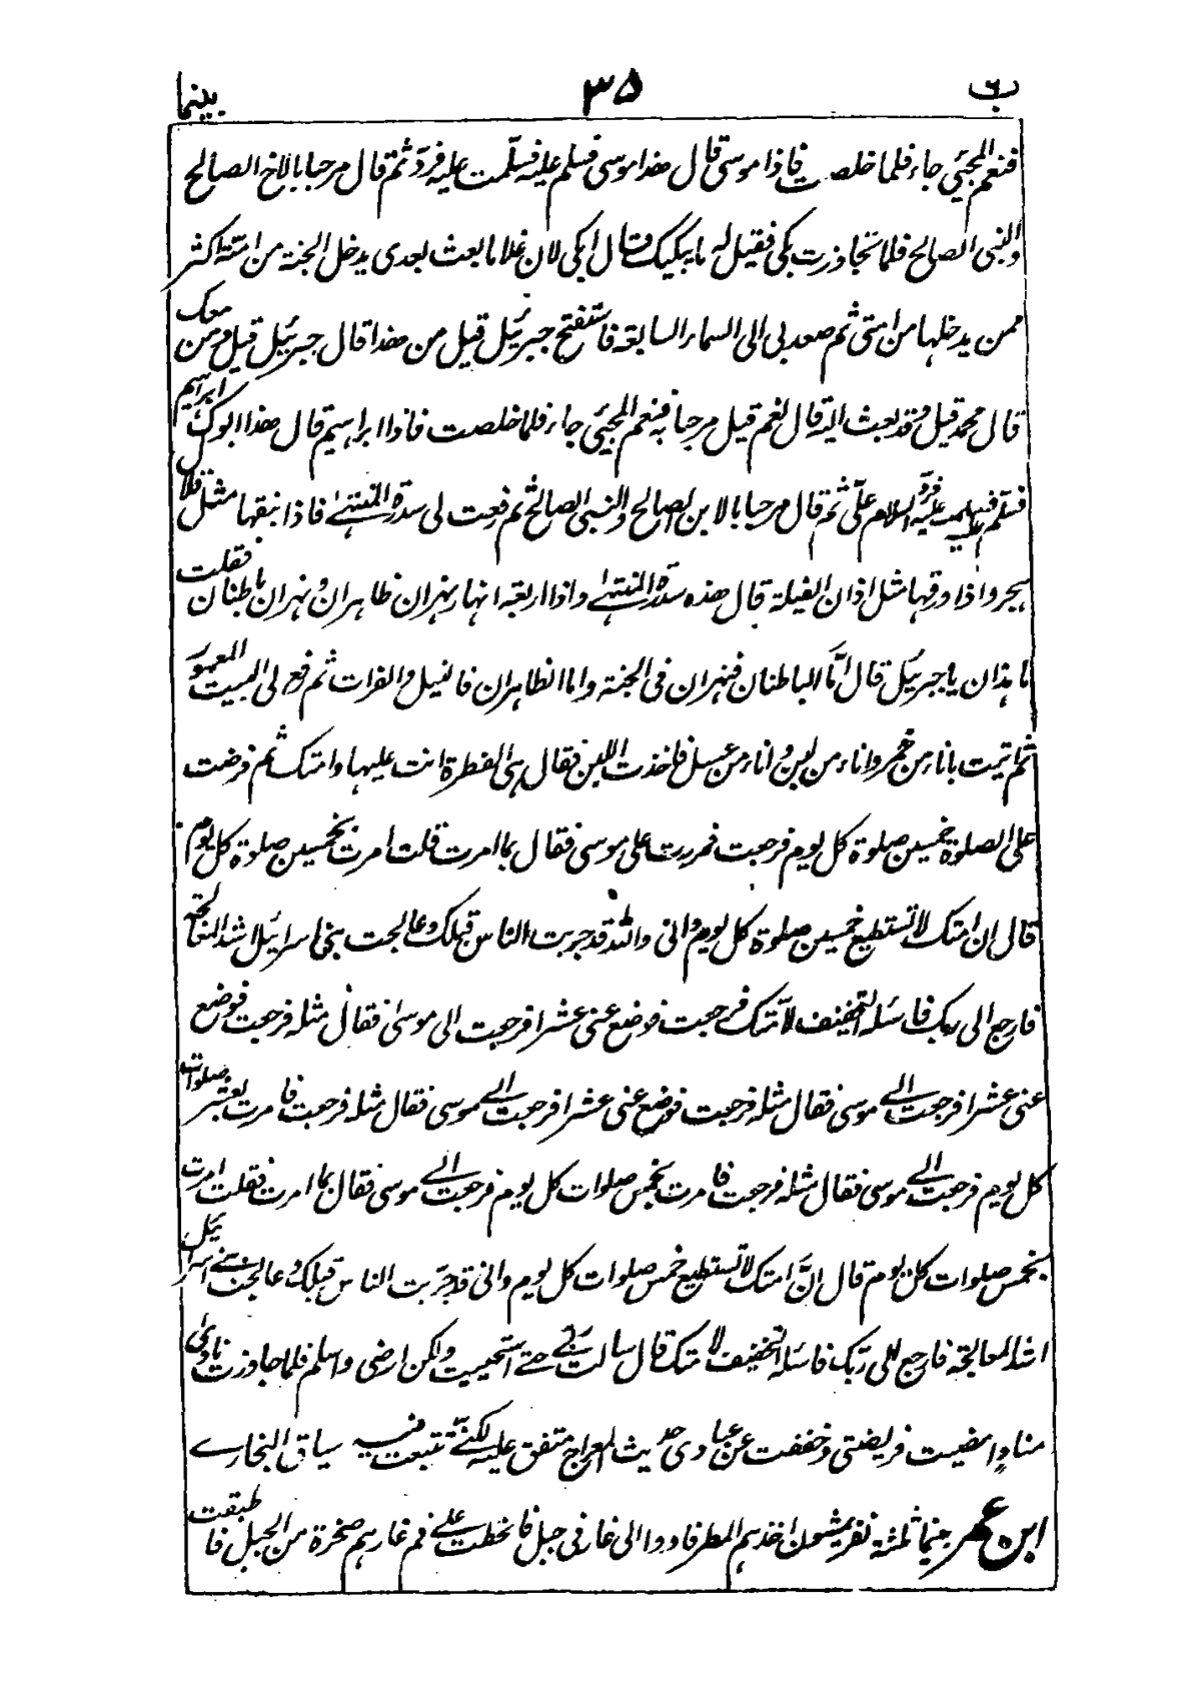 ب ٦ ٣٥ بينما
فنعم المجيئ جاء فلما خلصت فاذا موسى قال هذا موسى فسلم عليه فسلّمت عليه فردّ ثم قال مرحبا بالاخ الصالح
والنبى الصالح فلما تجاوزت بكى فقيل له ما يبكيك قال ابكى لان غلاما بعث بعدى يدخل الجنة من امته اكثر
ممن يدخلها من امتى ثم صعد بى الى السماء السابعة فاستفتح جبرئيل قيل من هذا قال جبرئيل قيل ومن معك
قال محمد قيل وقد بعث اليه قال نعم قيل مرحبا به فنعم المجيئ جاء فلما خلصت فاذا ابراهيم قال هذا ابوك ابراهيم
فسلم عليه فسلمت عليه فردّ السلام علىّ ثم قال مرحبا بالابن الصالح والنبى الصالح ثم رفعت لى سدرة المنتهىٰ فاذا نبقها مثل قلال
هجر واذا ورقها مثل اذان الفيلة قال هذه سدرة المنتهىٰ واذا اربعة انهار نهران ظاهران ونهران باطنان فقلت
ما هذان يا جبرئيل قال امّا الباطنان فنهران فى الجنة واما الظاهران فالنيل والفرات ثم رفع لى البيت المعمور
ثم اتيت باناء من خمر واناء من لبن واناء من عسل فاخذت اللبن فقال هى الفطرة انت عليها وامتك ثم فرضت
على الصلوة خمسين صلوة كل يوم فرجعت فمررت على موسى فقال بما امرت قلت امرت بخمسين صلوة كل يوم
قال ان امتك لا تستطيع خمسين صلوة كل يوم وانى والله قد جربت الناس قبلك وعالجت بنى اسرائيل اشد المعالجة
فارجع الى ربك فاسئله التخفيف لامتك فرجعت فوضع عنى عشرا فرجعت الى موسىٰ فقال مثله فرجعت فوضع
عنى عشرا فرجعت الى موسى فقال مثله فرجعت فوضع عنى عشرا فرجعت الى موسى فقال مثله فرجعت فامرت بعشر صلوات
كل يوم فرجعت الى موسى فقال مثله فرجعت فامرت بخمس صلوات كل يوم فرجعت الى موسى فقال بما امرت فقلت امرت
بخمس صلوات كل يوم قال انّ امتك لا تستطيع خمس صلوات كل يوم وانى قد جرّبت الناس قبلك وعالجت بنى اسرائيل
اشد المعالجة فارجع الى ربّك فاسئله التخفيف لامتك قال سالت ربى حتى استحييت ولكن ارضى واسلم فلما جاوزت نادى
منادٍ امضيت فريضتى وخففت عن عبادى حديث المعراج متفق عليه لكنّه تتبعت فيه سياق البخارى
ابن عمر بينما ثلثة نفر يمشون اخذهم المطر فاووا الى غار فى جبل فانحطت على فم غارهم صخرة من الجبل فاطبقت